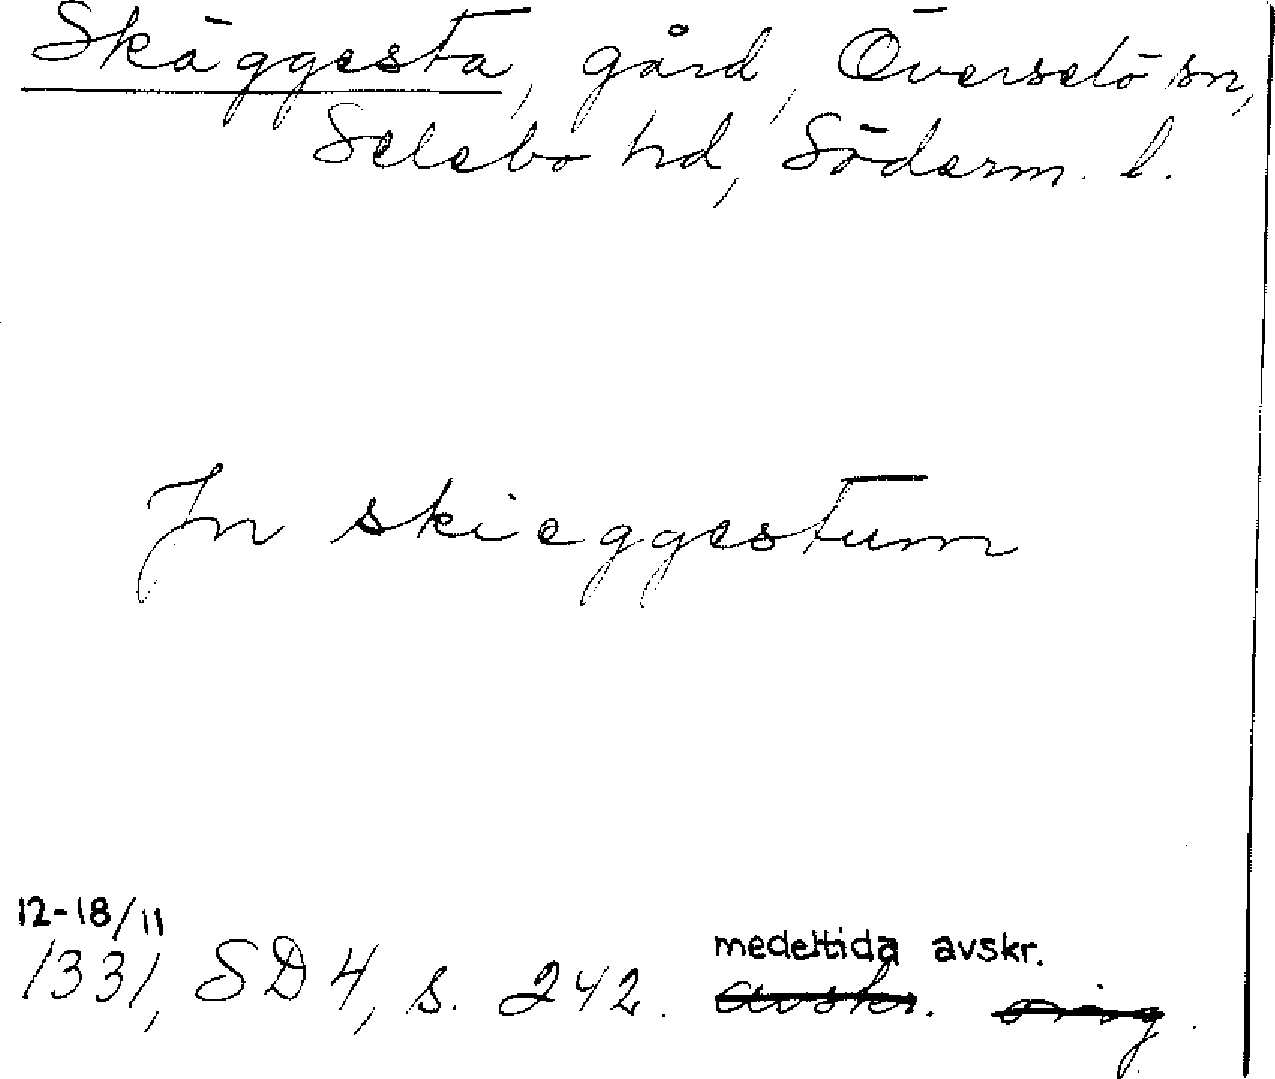 Skäggesta, gård, Överselö sn,
Selebo hd, Söderm. l.
In skieggestum
12-18/11
1331, SD 4, s. 242. medeltida avskr.
avskr. orig.